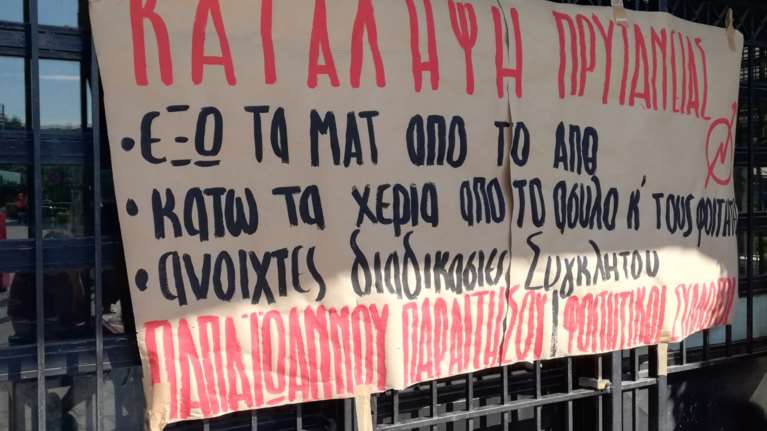 ΚΑΤΑΛΗΨΗ ΠΡΥΤΑΝΕΙΑΣ
• ΕΞΩ ΤΑ ΜΑΤ ΑΠΟ ΤΟ ΑΠΘ
• ΚΑΤΩ ΤΑ ΧΕΡΙΑ ΑΠΟ ΤΟ ΑΣΥΛΟ Κ' ΤΟΥΣ ΦΟΙΤΗΤΕΣ
• ΑΝΟΙΧΤΕΣ ΔΙΑΔΙΚΑΣΙΕΣ ΣΥΓΚΛΗΤΟΥ
ΠΑΠΑΪΩΑΝΝΟΥ ΠΑΡΑΙΤΗΣΟΥ! ΦΟΙΤΗΤΙΚΟΙ ΣΥΛΛΟΓΟΙ